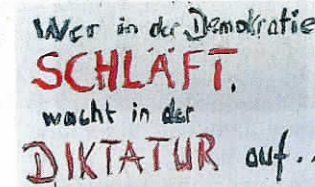 Wer in der Demokratie
SCHLÄFT,
wacht in der
DIKTATUR auf..